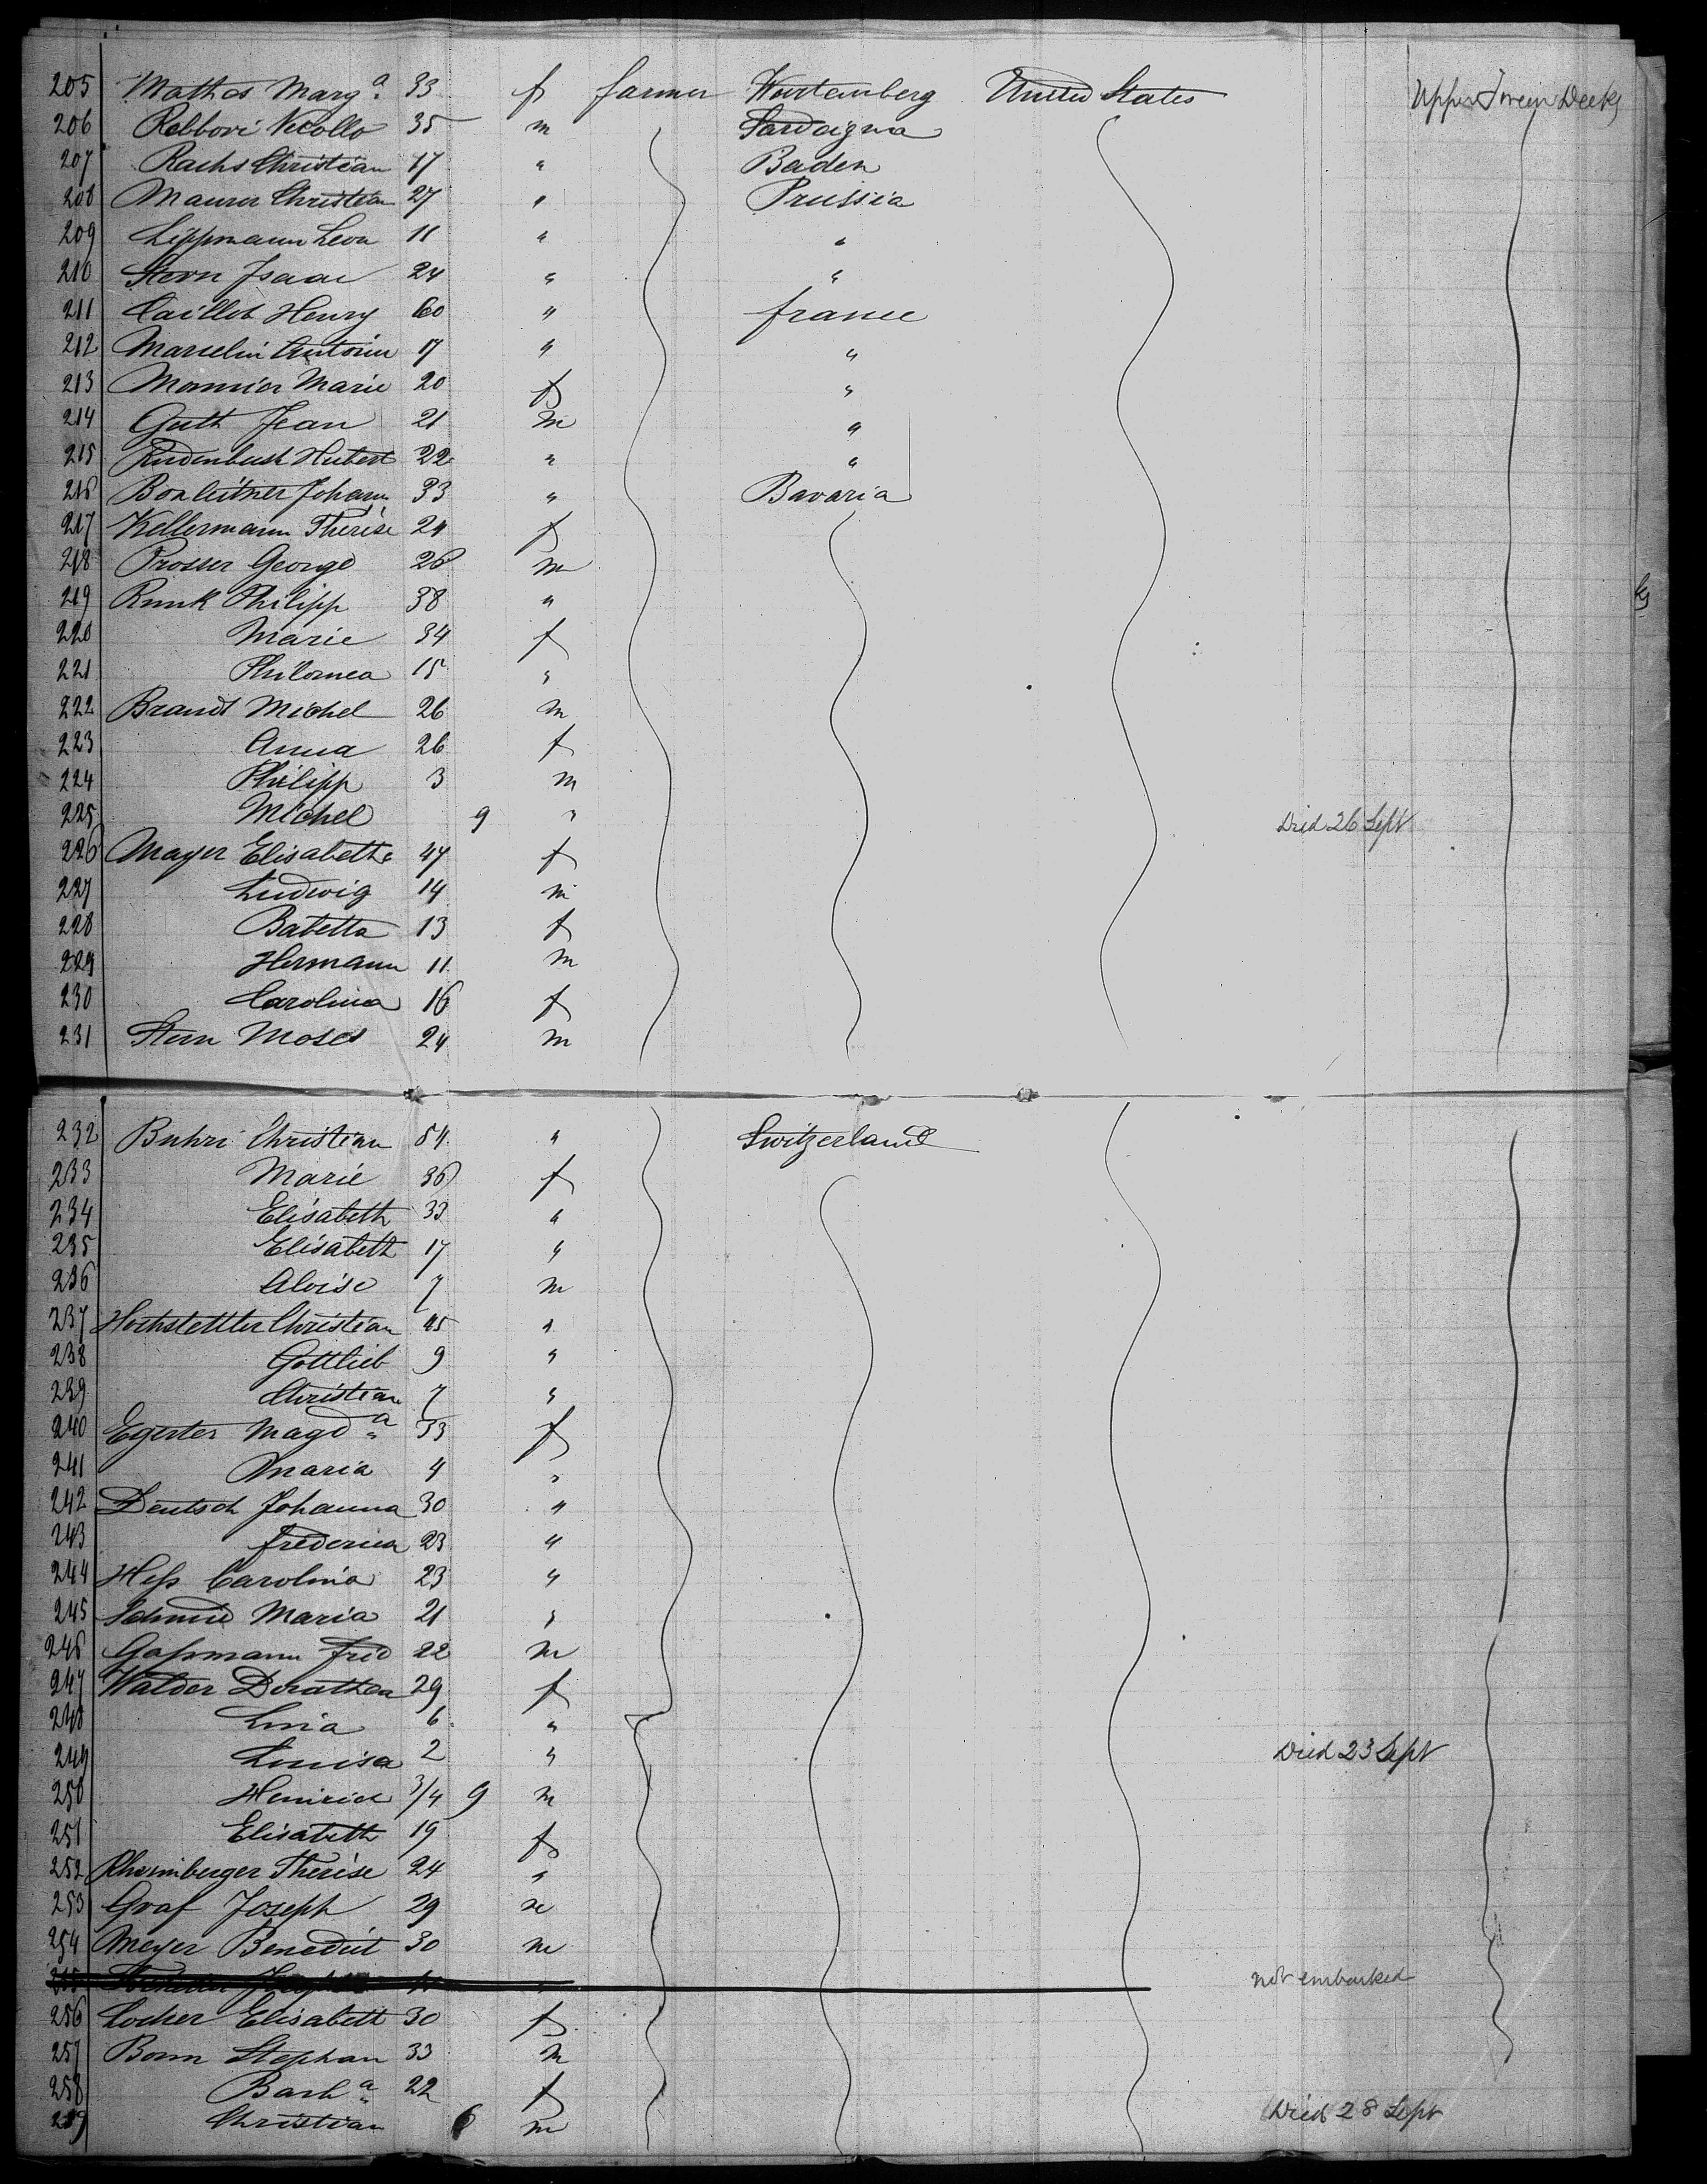 205 Mathes Marg.a 33 f farmer Wurtemberg United States Upper Tween Decks
206 Rebbori Nicollo 35 m Sardaigna
207 Rachs Christian 17 " Baden
208 Maurer Christian 27 " Prussia
209 Lippmann Leon 11 " "
210 Stern Isaac 24 " "
211 Caillot Henry 60 " france
212 Marcelin Antonin 17 " "
213 Monnier Marie 20 f "
214 Guth Jean 21 m "
215 Rudenbush Hubert 22 " "
216 Bonleitner Johann 33 " Bavaria
217 Kellermann Therese 24 f
218 Prosser George 26 m
219 Runk Philipp 38 "
220 Marie 34 f
221 Philomea 15 "
222 Brandt Michel 26 m
223 Anna 26 f
224 Philipp 3 m
225 Michel 9 " Died 26 Sept
226 Mayer Elisabetha 47 f
227 Ludwig 14 m
228 Babetta 13 f
229 Hermann 11 m
230 Carolina 16 f
231 Stern Moses 24 m
232 Buhri Christian 54 " Switzerland
233 Marie 36 f
234 Elisabeth 33 "
235 Elisabeth 17 "
236 Aloise 7 m
237 Hochstettler Christian 45 "
238 Gottlieb 9 "
239 Christian 7 "
240 Egerter Magd.a 33 f
241 Maria 4 "
242 Deutsch Johanna 30 "
243 frederica 23 "
244 Hess Carolina 23 "
245 Schmid Maria 21 "
246 Gassmann Fred 22 m
247 Walder Dorathea 29 f
248 Lina 6 "
249 Louisa 2 " Died 23 Sept
250 Heinrich 3/4 9 m
251 Elisabeth 19 f
252 Rheinberger Therese 24 "
253 Graf Joseph 29 m
254 Meyer Benedict 30 m
not embarked
256 Locher Elisabeth 30 f
257 Bonn Stephan 33 m
258 Barb.a 22 f
259 Christian 6 m Died 28 Sept